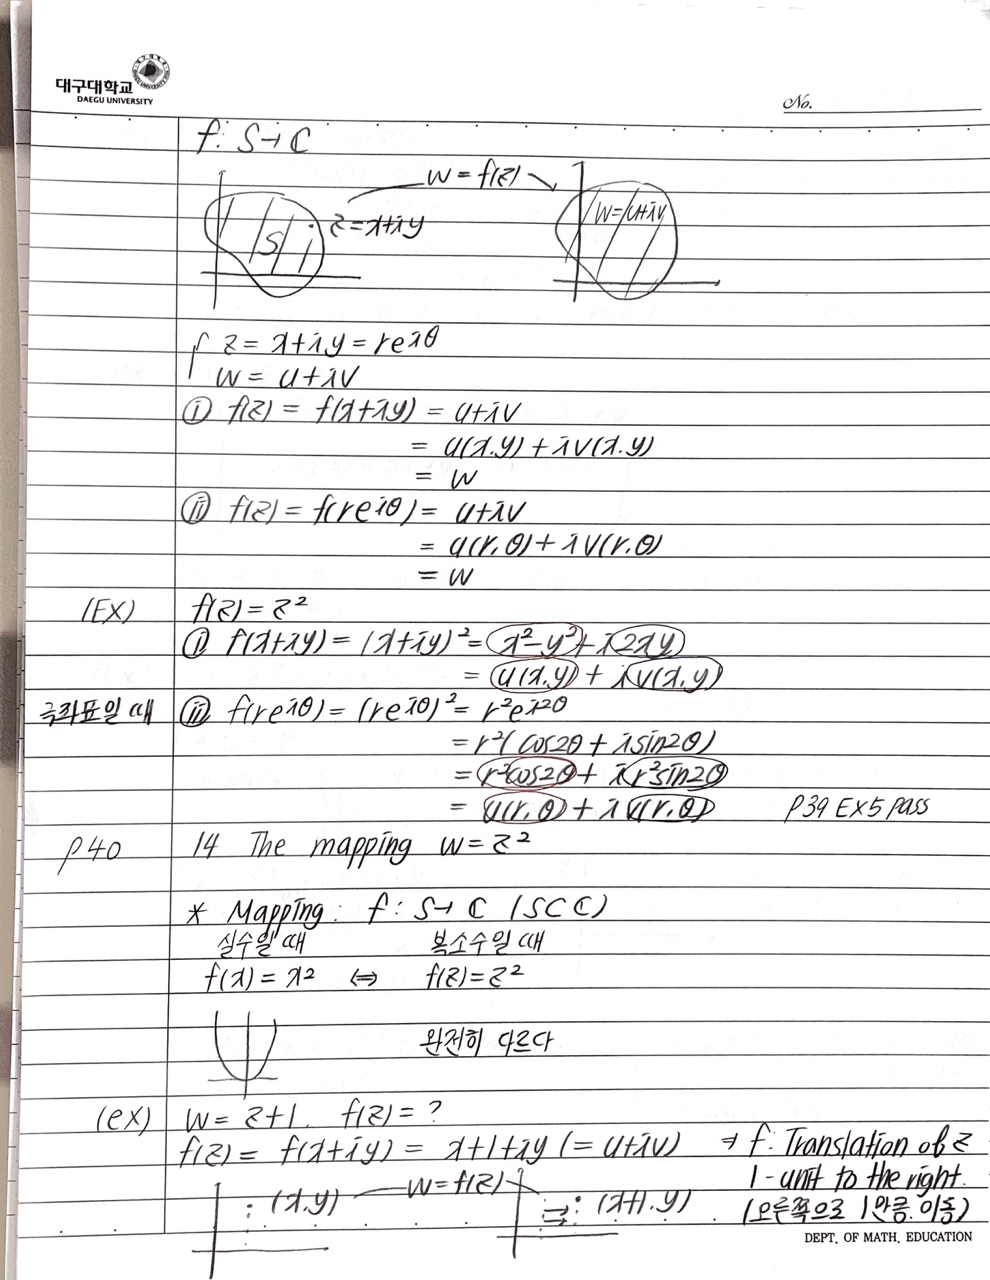 대구대학교
DAEGU UNIVERSITY
No.
f: S→ℂ
w = f(z)
z = x+iy
S
w = u+iv
z = x+iy = re^iθ
w = u+iv
ⓘ f(z) = f(x+iy) = u+iv
= u(x.y) + iv(x.y)
= w
ⓘⓘ f(z) = f(re^iθ) = u+iv
= u(r,θ) + iv(r,θ)
= w
(EX) f(z) = z²
ⓘ f(x+iy) = (x+iy)² = x²-y² + i2xy
= u(x,y) + iv(x,y)
극좌표일 때 ⓘⓘ f(re^iθ) = (re^iθ)² = r²e^i2θ
= r²(cos2θ + isin2θ)
= r²cos2θ + ir²sin2θ
= u(r,θ) + iv(r,θ) P39 EX5 pass
P40 14 The mapping w = z²
* Mapping: f: S→ℂ (S⊂ℂ)
실수일 때 복소수일 때
f(x) = x² ⇔ f(z) = z²
완전히 다르다
(ex) w = z+1. f(z) = ?
f(z) = f(x+iy) = x+1+iy (= u+iv) ⇒ f: Translation of z
1-unit to the right.
(오른쪽으로 1만큼 이동)
(x.y) w = f(z) (x+1.y)
DEPT. OF MATH. EDUCATION